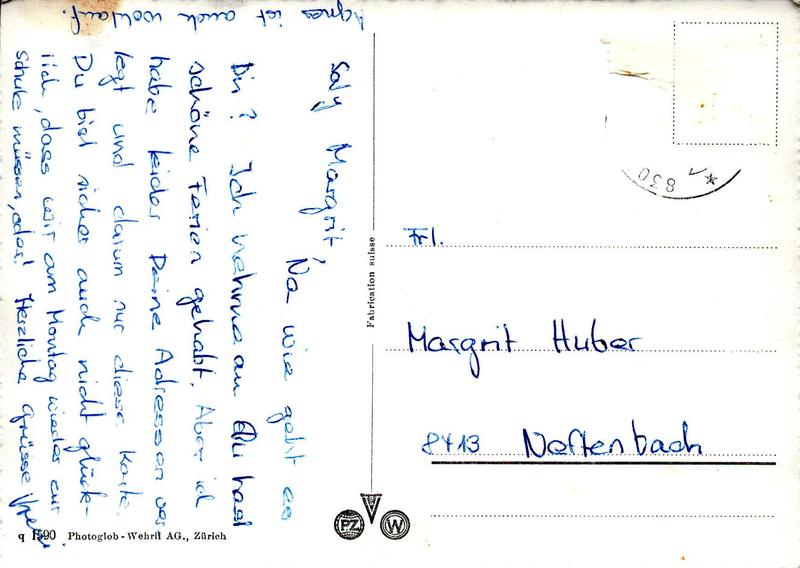 Saly Margrit,
Na wie geht es
Dir? Ich nehme an Du hast
schöne Ferien gehabt. Aber ich
habe leider Deine Adressen ver
legt und darum nur diese Karte.
Du bist sicher auch nicht glück-
lich, dass wir am Montag wieder zur
Schule müssen, oder! Herzliche Grüsse
Agnes ist auch wohlauf.
Fabrication suisse
830
Frl.
Margrit Huber
8413 Neftenbach
PZ W
q 1590 Photoglob-Wehrli AG., Zürich